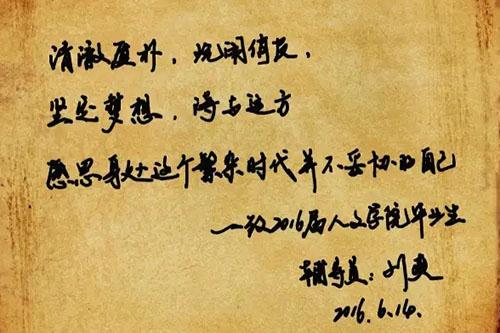 清澈质朴，玩闹
坚定梦想，诗与远方
感恩身处这个繁杂时代并不妥协的自己
—致2016届人文学院毕业生
辅导员：刘
2016.6.14.